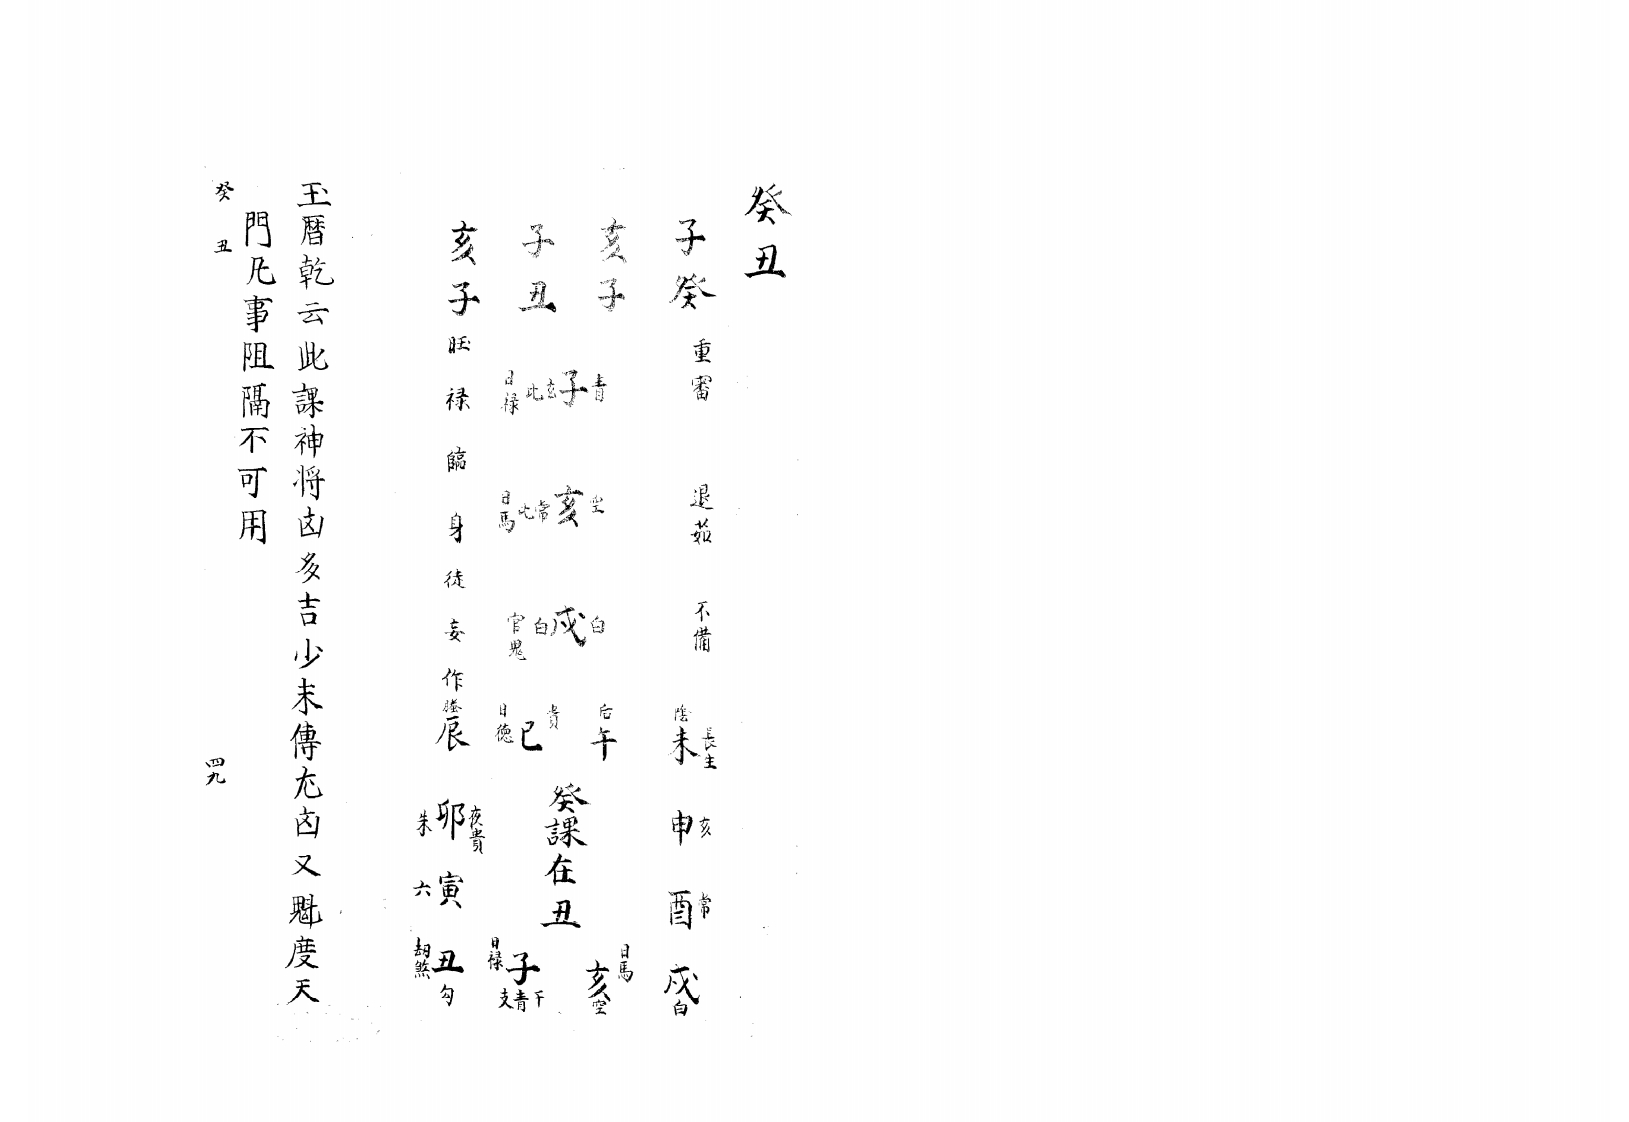 癸丑
子癸 重審 退茹 不備
亥子
子丑
亥子 旺禄臨身徒妄作
青 子 玄比 日禄
空 亥 常比 日馬
白 戌 白 官鬼
陰 未 長生
后 午
貴 巳 日德
螣 辰
申 亥
朱 卯 夜貴
酉 常
六 寅
癸課在丑
戌 白
日馬 亥 空
日禄 子 支青干
劫煞 丑 勾
玉暦乾云此課神将凶多吉少未傳尤凶又魁度天
門凡事阻隔不可用
癸丑 四九